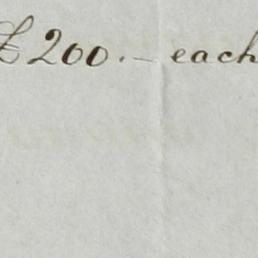 £ 200.— each